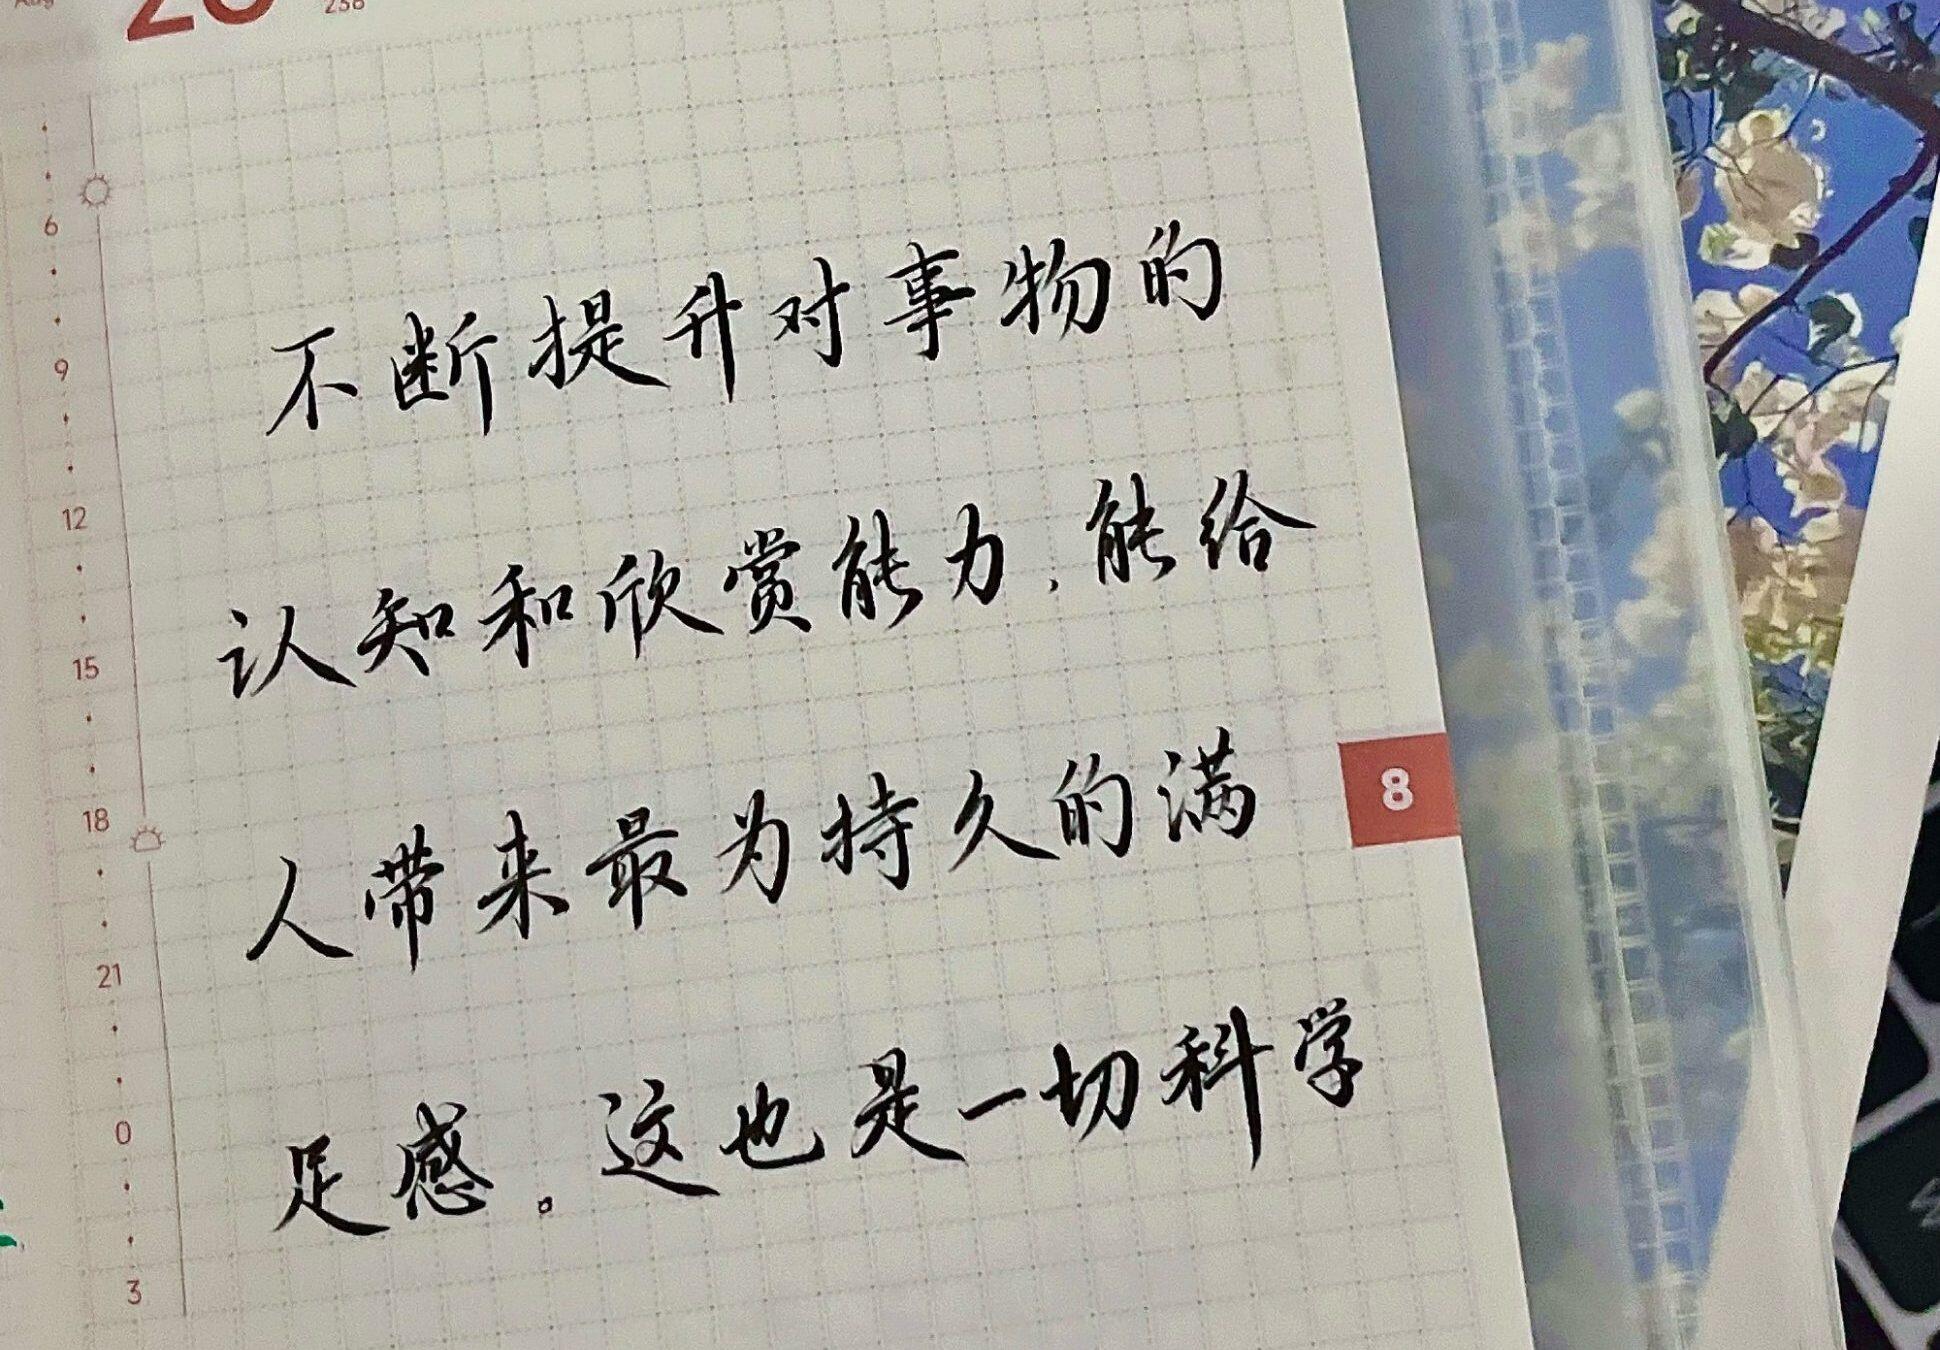 Aug
238
不断提升对事物的
认知和欣赏能力,能给
人带来最为持久的满
足感。这也是一切科学
6
9
12
15
18
21
0
3
8